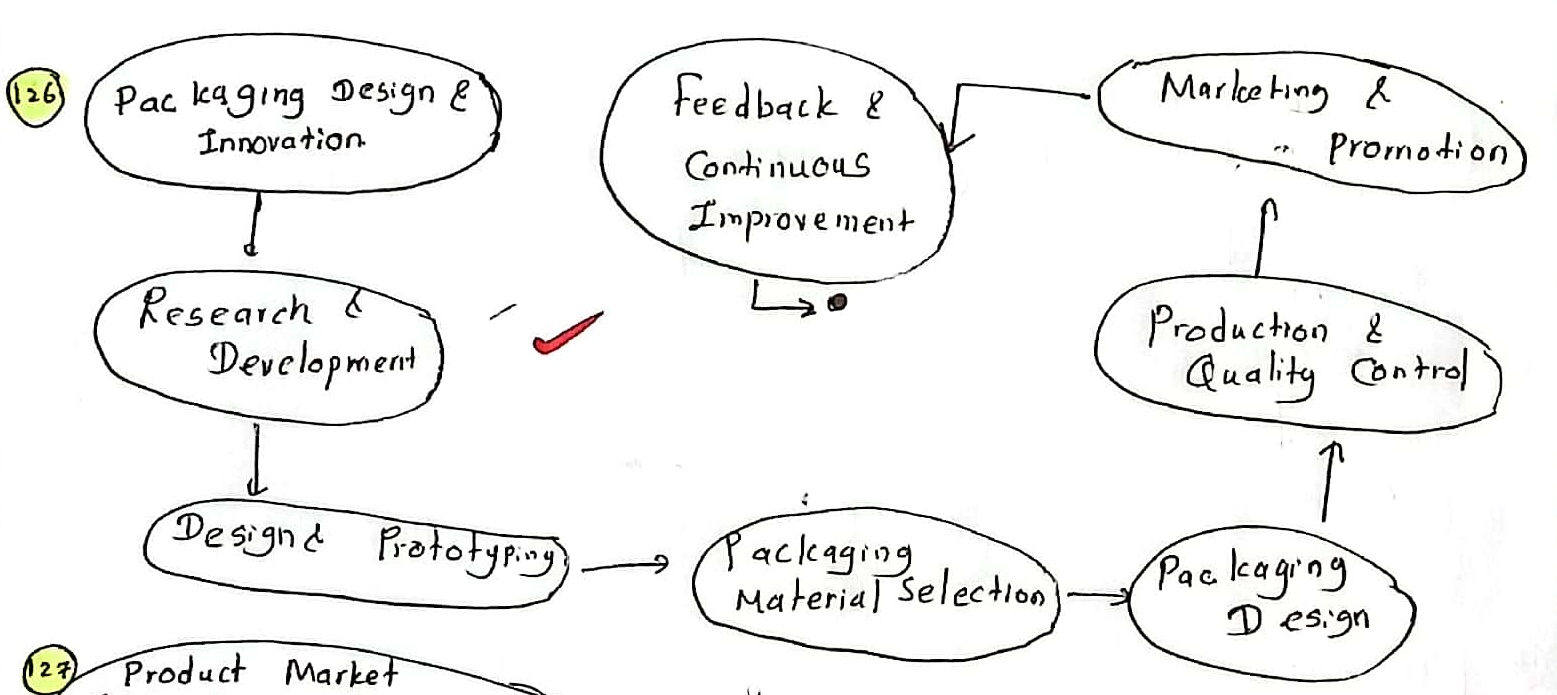 126
Packaging Design &
Innovation
Research &
Development
Design & Prototyping
Packaging
Material Selection
Packaging
Design
Production &
Quality Control
Marketing &
Promotion
Feedback &
Continuous
Improvement
127
Product Market